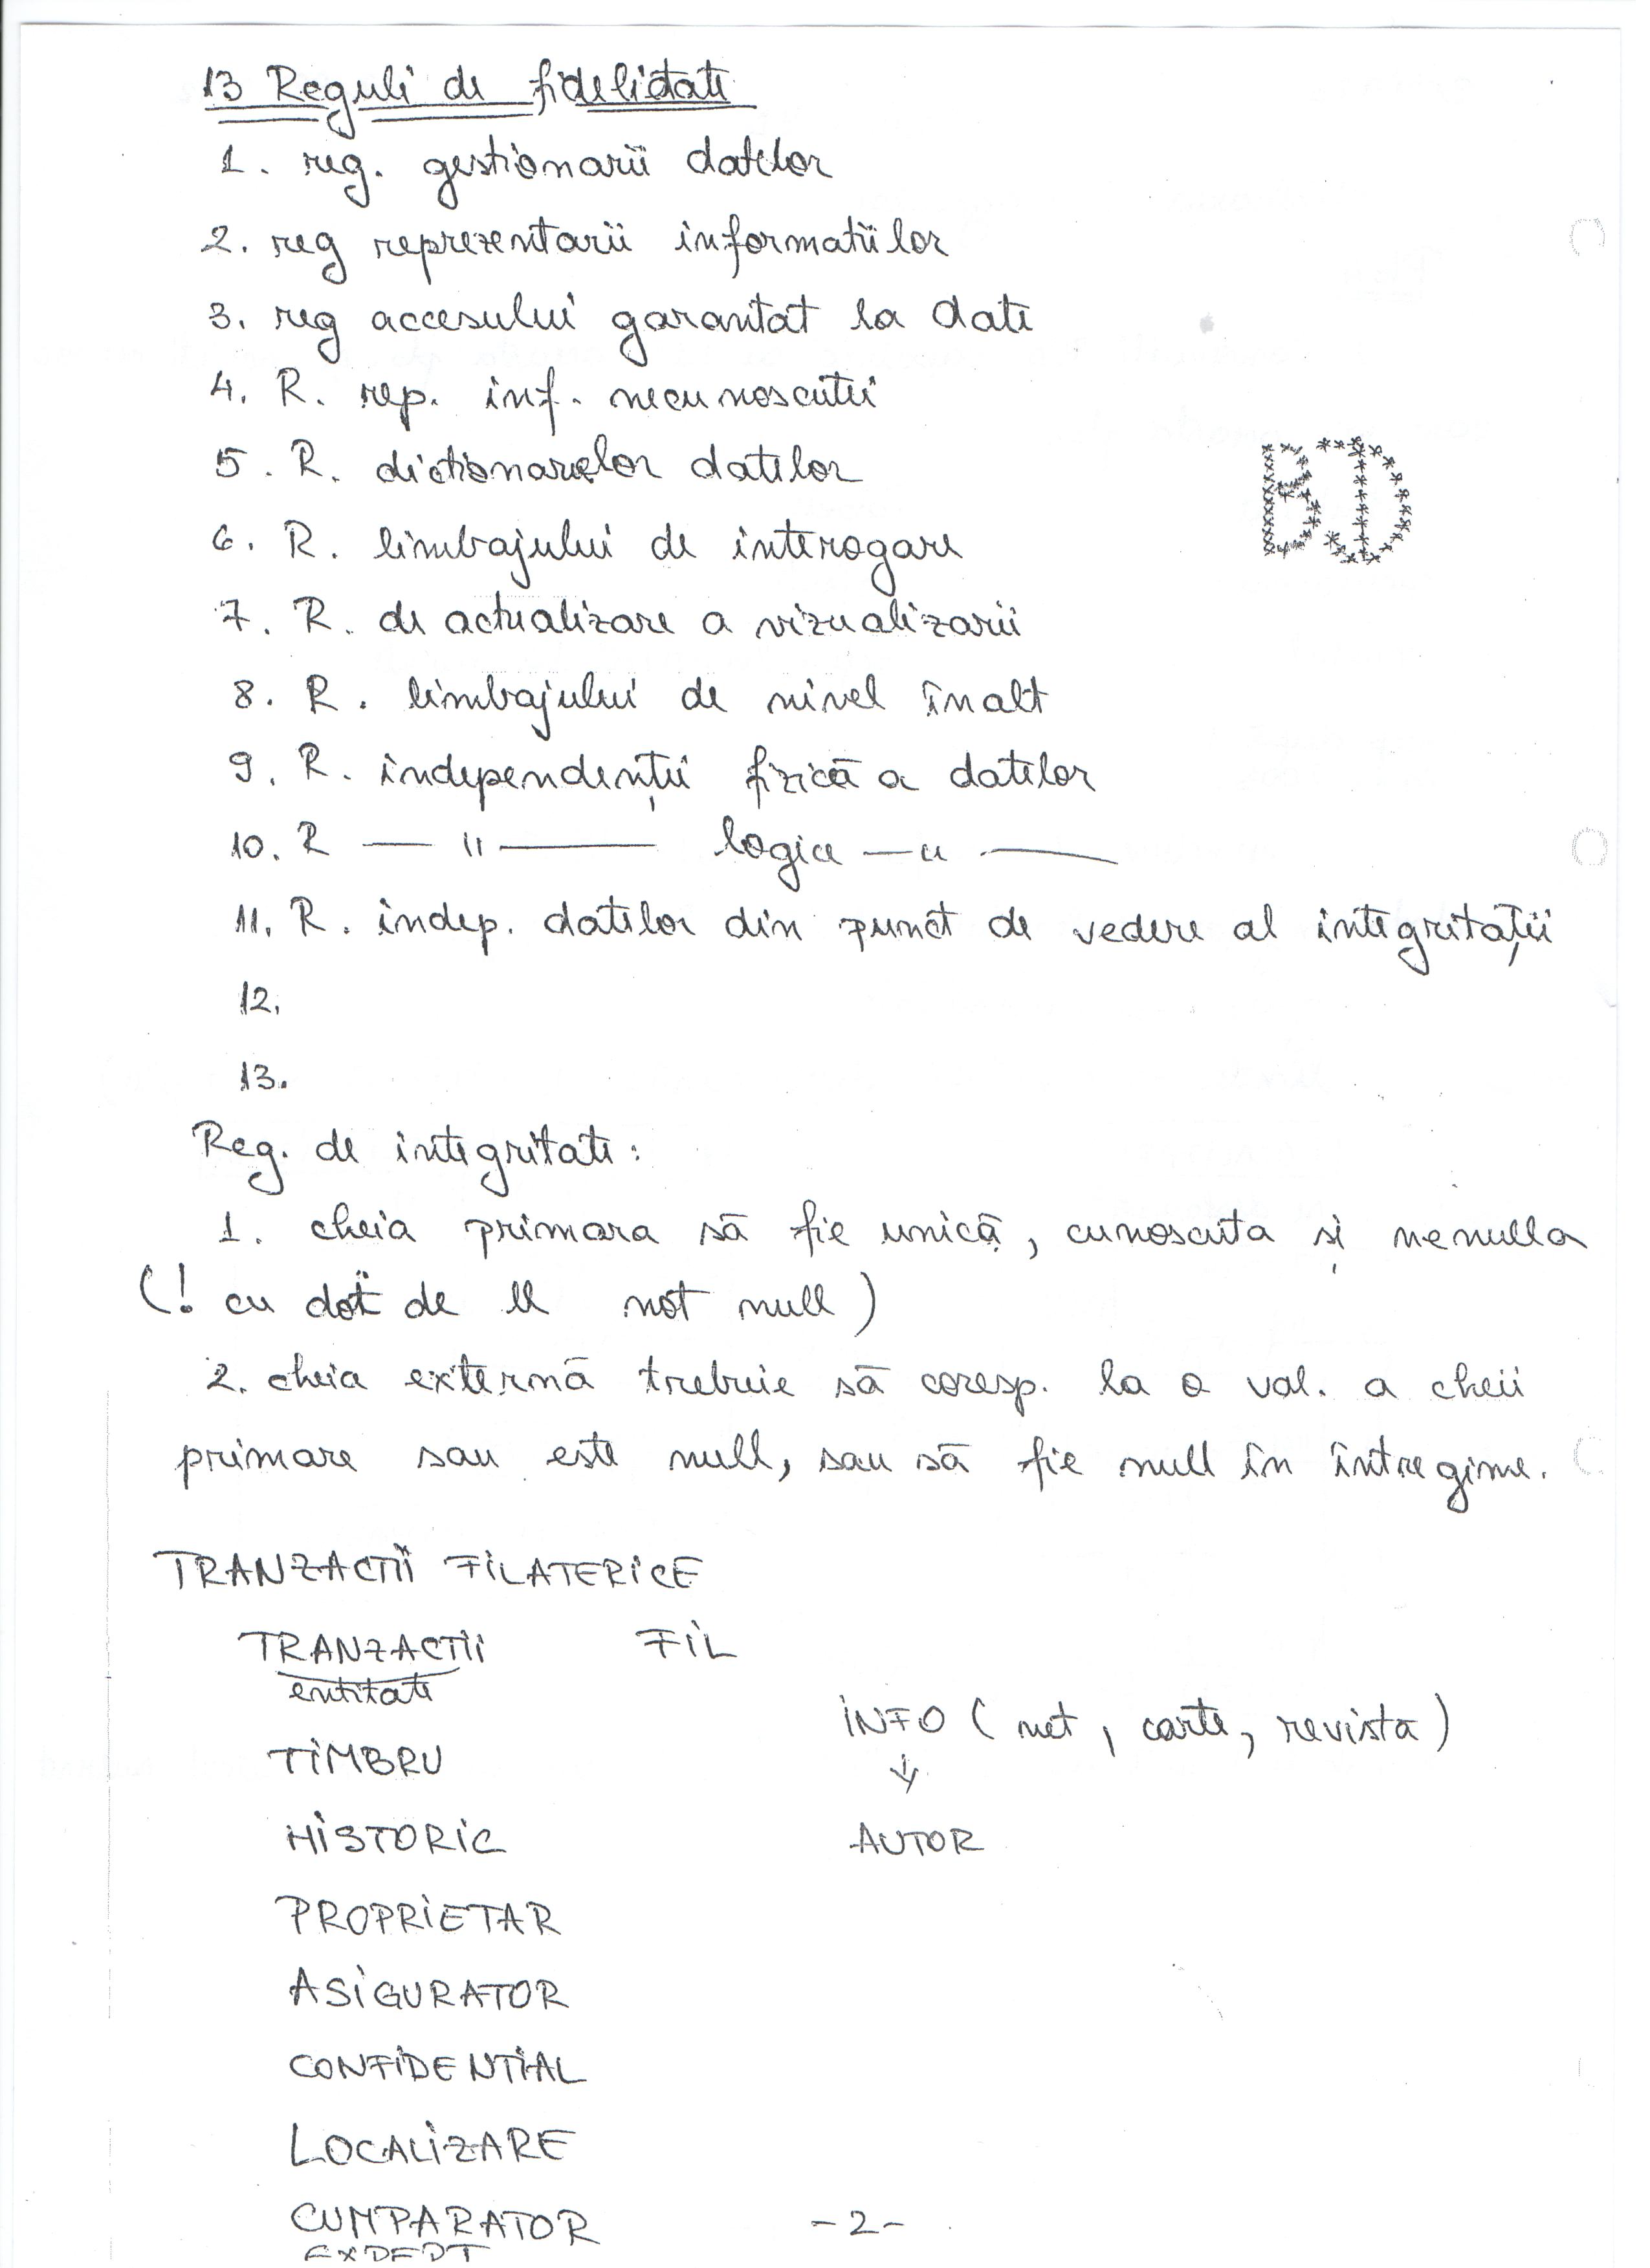 13 Reguli de fidelitate
1. reg. gestionarii datelor
2. reg reprezentarii informatiilor
3. reg accesului garantat la date
4. R. rep. inf. necunoscutei
5. R. dictionarelor datelor
BD
6. R. limbajului de interogare
7. R. de actualizare a vizualizarii
8. R. limbajului de nivel înalt
9. R. independenței fizică a datelor
10. R — " — logice — " —
11. R. indep. datelor din punct de vedere al integritații
12.
13.
Reg. de integritate:
1. cheia primara să fie unică, cunoscuta și nenulla
(! cu dot de ll not null)
2. cheia externă trebuie să coresp. la o val. a cheii
primare sau este null, sau să fie null în întregime.
TRANZACTII FILATERICE
TRANZACTII FIL
entitate
INFO (net, carte, revista)
TIMBRU
↓
HISTORIC AUTOR
PROPRIETAR
ASIGURATOR
CONFIDENTIAL
LOCALIZARE
CUMPARATOR -2-
EXPERT